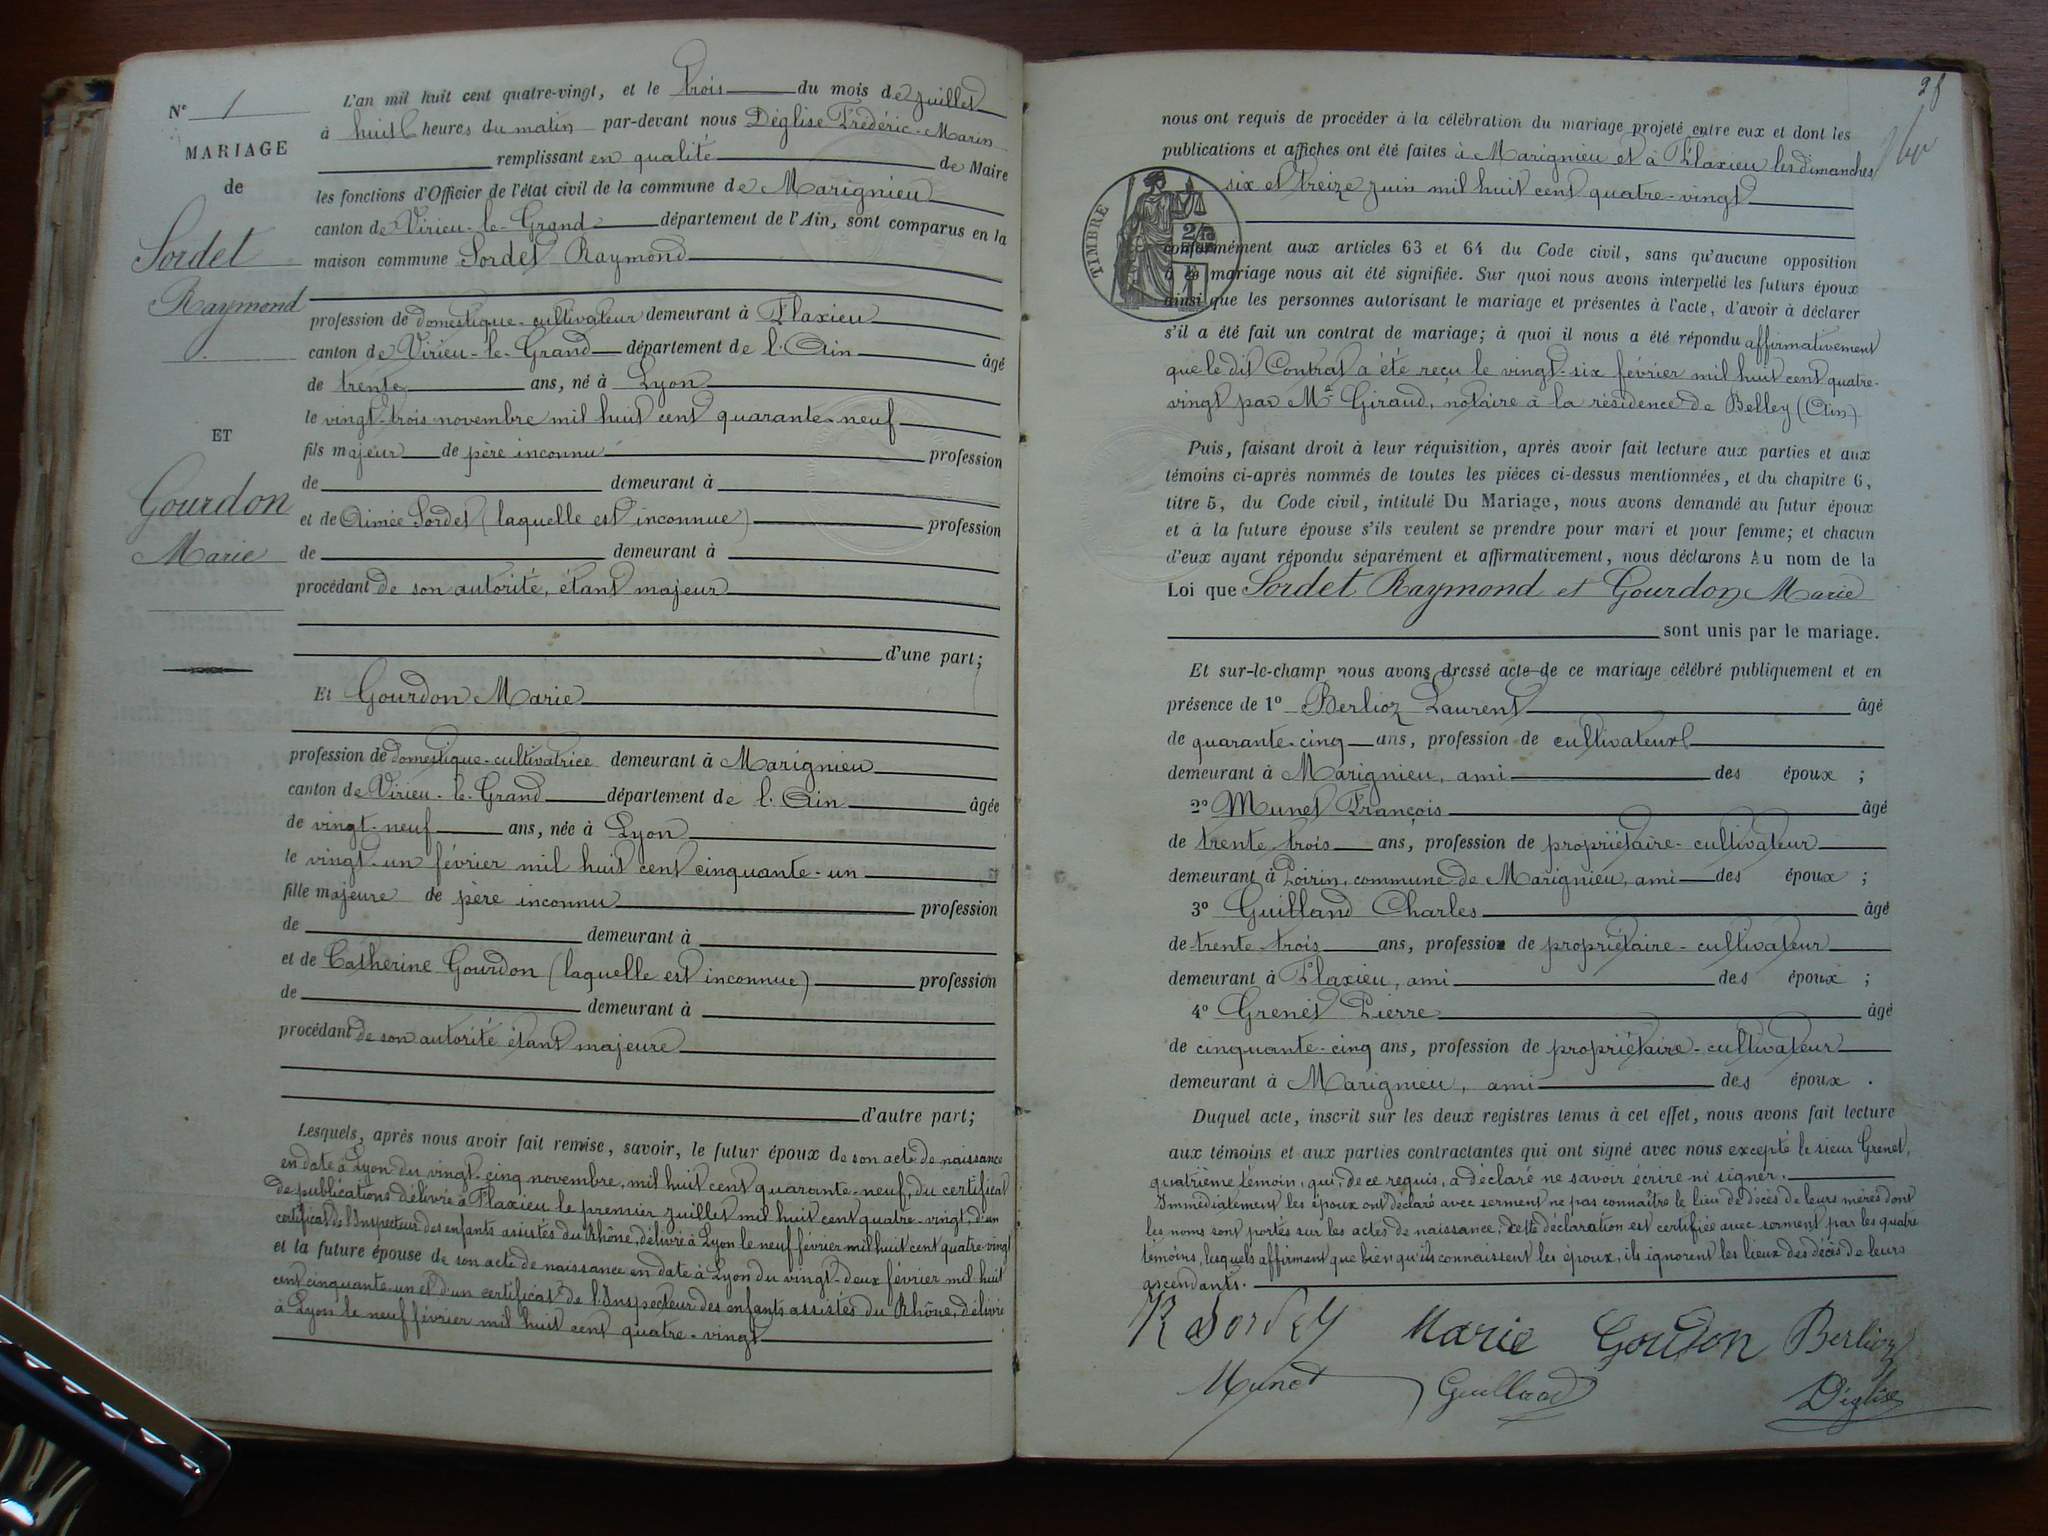 N° 1
MARIAGE
de
Sordet
Raymond
ET
Gourdon
Marie
L'an mil huit cent quatre-vingt, et le trois du mois de juillet
à huit heures du matin par-devant nous Déglise Frédéric-Marin
remplissant en qualité de Maire
les fonctions d'Officier de l'état civil de la commune de Marignieu
canton de Virieu-le-Grand département de l'Ain, sont comparus en la
maison commune Sordet Raymond
profession de domestique-cultivateur demeurant à Flaxieu
canton de Virieu-le-Grand département de l'Ain âgé
de trente ans, né à Lyon
le vingt-trois novembre mil huit cent quarante-neuf
fils majeur de père inconnu profession
de demeurant à
et de Aimée Sordet (laquelle est inconnue) profession
de demeurant à
procédant de son autorité, étant majeur
d'une part;
Et Gourdon Marie
profession de domestique-cultivatrice demeurant à Marignieu
canton de Virieu-le-Grand département de l'Ain âgée
de vingt-neuf ans, née à Lyon
le vingt-un février mil huit cent cinquante-un
fille majeure de père inconnu profession
de demeurant à
et de Catherine Gourdon (laquelle est inconnue) profession
de demeurant à
procédant de son autorité étant majeure
d'autre part;
Lesquels, après nous avoir fait remise, savoir, le futur époux de son acte de naissance
en date à Lyon du vingt-cinq novembre, mil huit cent quarante-neuf, du certificat
de publications délivré à Flaxieu le premier juillet mil huit cent quatre-vingt, d'un
certificat de l'Inspecteur des enfants assistés du Rhône, délivré à Lyon le neuf février mil huit cent quatre-vingt
et la future épouse de son acte de naissance en date à Lyon du vingt-deux février mil huit
cent cinquante-un et d'un certificat de l'Inspecteur des enfants assistés du Rhône, délivré
à Lyon le neuf février mil huit cent quatre-vingt
28
nous ont requis de procéder à la célébration du mariage projeté entre eux et dont les
publications et affiches ont été faites à Marignieu et à Flaxieu les dimanches
six et treize juin mil huit cent quatre-vingt
TIMBRE
conformément aux articles 63 et 64 du Code civil, sans qu'aucune opposition
à ce mariage nous ait été signifiée. Sur quoi nous avons interpellé les futurs époux
ainsi que les personnes autorisant le mariage et présentes à l'acte, d'avoir à déclarer
s'il a été fait un contrat de mariage; à quoi il nous a été répondu affirmativement
que le dit Contrat a été reçu le vingt-six février mil huit cent quatre-
vingt par Me Giraud, notaire à la résidence de Belley (Ain).
Puis, faisant droit à leur réquisition, après avoir fait lecture aux parties et aux
témoins ci-après nommés de toutes les pièces ci-dessus mentionnées, et du chapitre 6,
titre 5, du Code civil, intitulé Du Mariage, nous avons demandé au futur époux
et à la future épouse s'ils veulent se prendre pour mari et pour femme; et chacun
d'eux ayant répondu séparément et affirmativement, nous déclarons Au nom de la
Loi que Sordet Raymond et Gourdon Marie
sont unis par le mariage.
Et sur-le-champ nous avons dressé acte de ce mariage célébré publiquement et en
présence de 1° Berlioz Laurent âgé
de quarante-cinq ans, profession de cultivateur
demeurant à Marignieu, ami des époux ;
2° Munet François âgé
de trente-trois ans, profession de propriétaire-cultivateur
demeurant à Poirin, commune de Marignieu, ami des époux ;
3° Guilland Charles âgé
de trente-trois ans, profession de propriétaire-cultivateur
demeurant à Flaxieu, ami des époux ;
4° Grenet Pierre âgé
de cinquante-cinq ans, profession de propriétaire-cultivateur
demeurant à Marignieu, ami des époux .
Duquel acte, inscrit sur les deux registres tenus à cet effet, nous avons fait lecture
aux témoins et aux parties contractantes qui ont signé avec nous excepté le sieur Grenet,
quatrième témoin, qui, de ce requis, a déclaré ne savoir écrire ni signer.
Immédiatement les époux ont déclaré avec serment ne pas connaître le lieu de décès de leurs mères dont
les noms sont portés sur les actes de naissance; cette déclaration est certifiée avec serment par les quatre
témoins, lesquels affirment que bien qu'ils connaissent les époux, ils ignorent les lieux des décès de leurs
ascendants.
R Sordet Marie Gourdon Berlioz
Munet Guilland Déglise